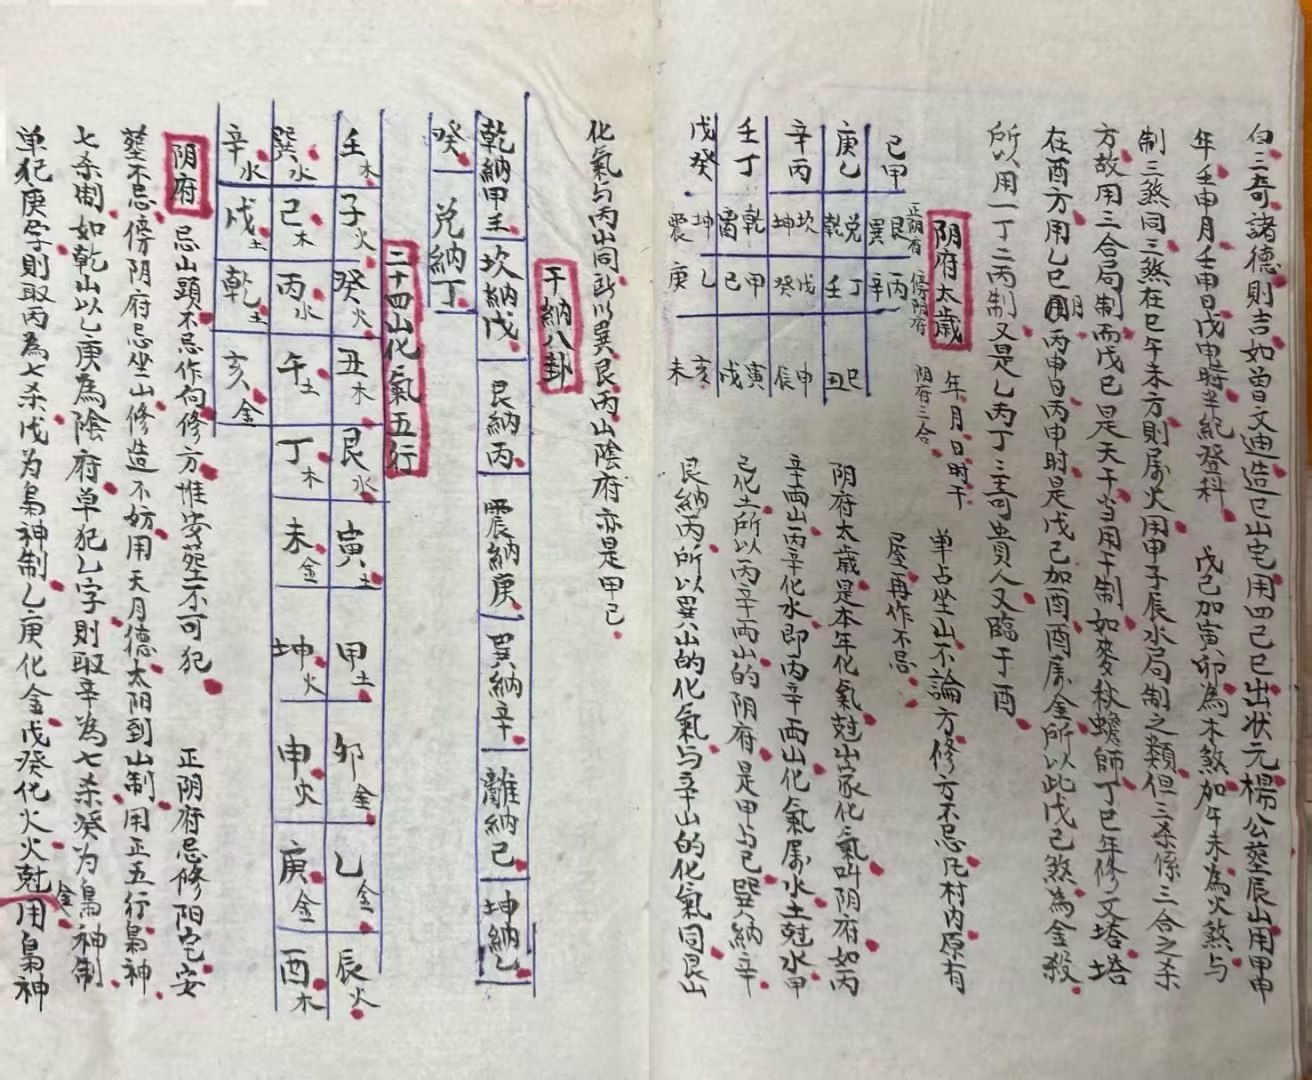 白三奇諸德則吉如曾文迪造巳山宅用四己巳出状元楊公塟辰山用甲申
年壬申月壬申日戊申時半紀登科 戊己加寅卯為木煞加午未為火煞与
制三煞同三煞在巳午未方則属火用申子辰水局制之類但三杀係三合之杀
方故用三合局制而戊己是天干当用干制如麥秋蟾師丁巳年修文塔塔
在酉方用乙巳月丙申日丙申时是戊己加酉酉属金所以此戊己煞為金殺
所以用一丁二丙制又是乙丙丁三奇貴人又臨于酉
阴府太歲 年月日时干
單占坐山不論方修方不忌凡村内原有
屋再作不忌
正阴有 傍阴府 阴府三合
己甲 巽艮 辛丙
庚乙 乾兑 壬丁 丑巳
辛丙 坤坎 癸戊 辰申
壬丁 離乾 己甲 戌寅
戊癸 震坤 庚乙 未亥
阴府太歲是本年化氣尅山家化氣叫阴府如丙
辛兩山丙辛化水即丙辛两山化氣属水土尅水甲
己化土所以丙辛两山的阴府是甲与己巽納辛
艮納丙所以巽山的化氣与辛山的化氣同艮山
化氣与丙山同所以巽艮丙山陰府亦是甲己
干納八卦
乾納甲壬 坎納戊 艮納丙 震納庚 巽納辛 離納己 坤納乙
癸 兑納丁
二十四山化氣五行
壬木 子火 癸火 丑木 艮水 寅土 甲土 卯金 乙金 辰火
巽水 己木 丙水 午土 丁木 未金 坤火 申火 庚金 酉木
辛水 戌土 乾土 亥金
阴府 忌山頭不忌作向修方惟安塟不可犯 正阴府忌修阳宅安
塟不忌傍阴府忌坐山修造不妨用天月德太阴到山制用正五行梟神
七杀制如乾山以乙庚為陰府单犯乙字則取辛為七杀癸为梟神制
单犯庚字則取丙為七杀戊为梟神制乙庚化金戊癸化火火尅金用梟神